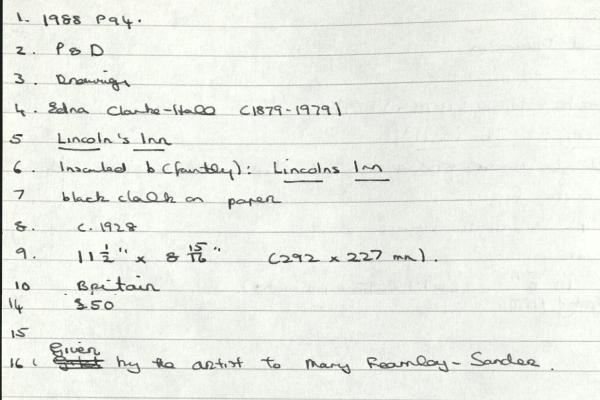 1. 1988 P94.
2. P & D
3. Drawings
4. Edna Clarke-Hall (1879-1979)
5 Lincoln's Inn
6. Inscribed b (faintly): Lincolns Inn
7 black chalk on paper
8. c. 1928
9. 11 1/2" x 8 15/16" (292 x 227 mm).
10 Britain
14 £50
15
Given
16 ( by the artist to Mary Fearnley-Sander.